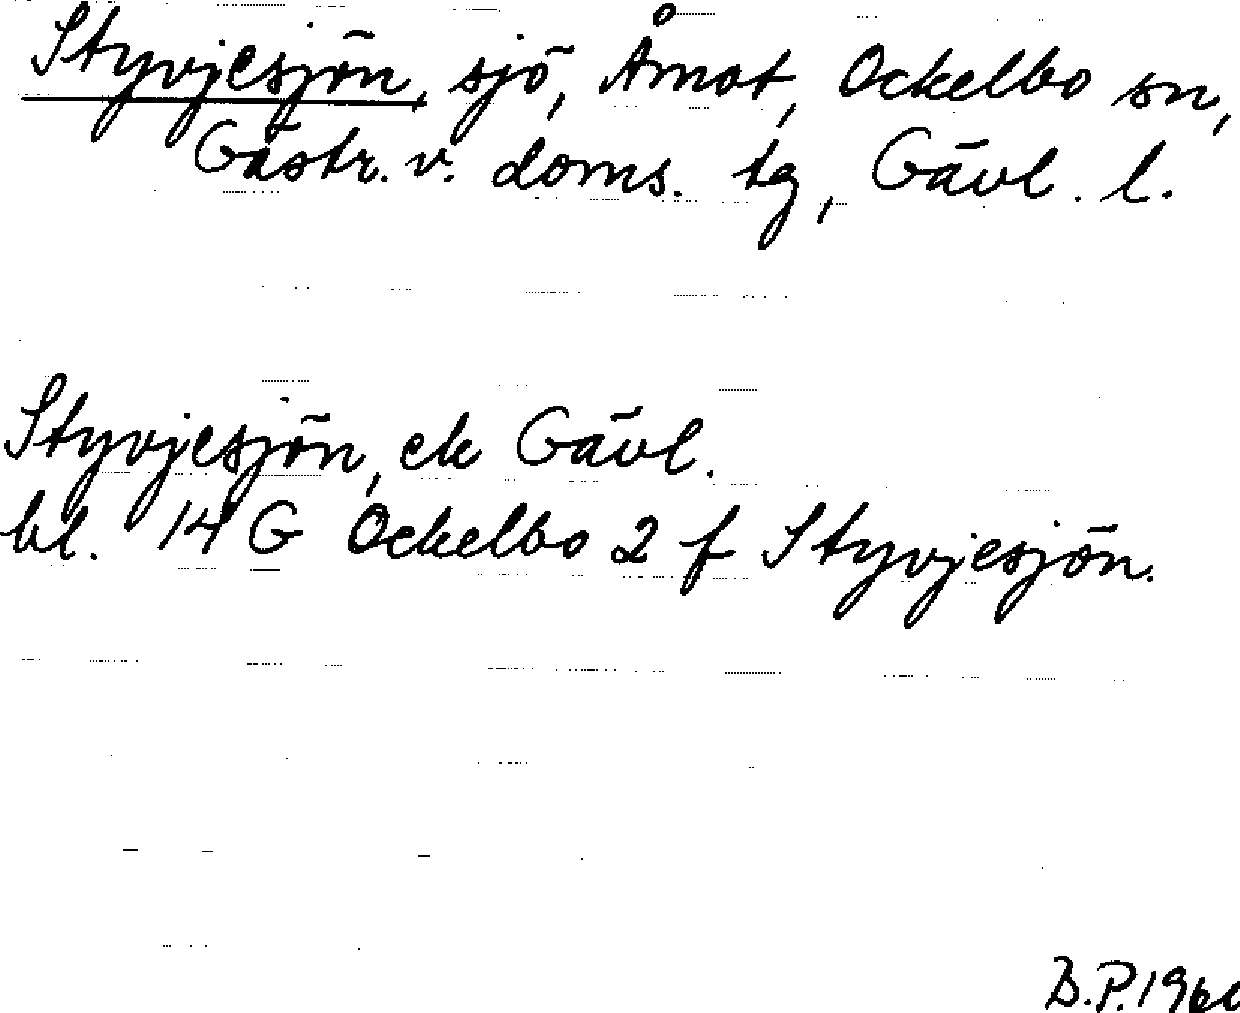 Styvjesjön, sjö, Åmot, Ockelbo sn,
Gästr. v. doms. tg, Gävl. l.
Styvjesjön, ek Gävl.
bl. 14 G Ockelbo 2 f Styvjesjön.
B.P.